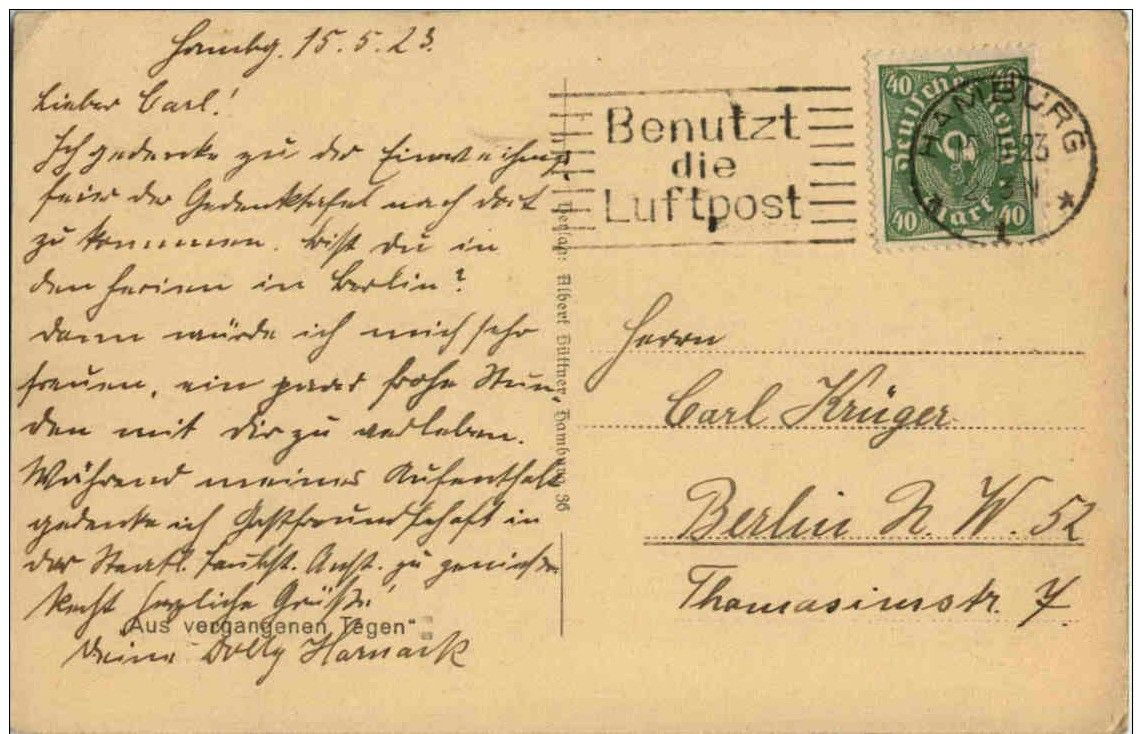 Hambg. 15.5.23.
Lieber Carl!
Ich gedenke zu der Einweihungs
feier der Gedenktafel nach dort
zu kommen. Bist du in
den Ferien in Berlin?
Dann würde ich mich sehr
freuen, ein paar frohe Stun
den mit dir zu verleben.
Während meines Aufenthalt
gedenke ich Gastfreundschaft in
der Staatl. Taubst. Anst. zu genießen
Recht herzliche Grüße!
"Aus vergangenen Tagen"
Deine Dolly Harnack
Verlag: Albert Hüttner, Hamburg 36
Benutzt
die
Luftpost
40 40
Deutsches Reich
40 Mark 40
HAMBURG
23
1
Herrn
Carl Krüger
Berlin N. W. 52
Thomasiusstr. 7